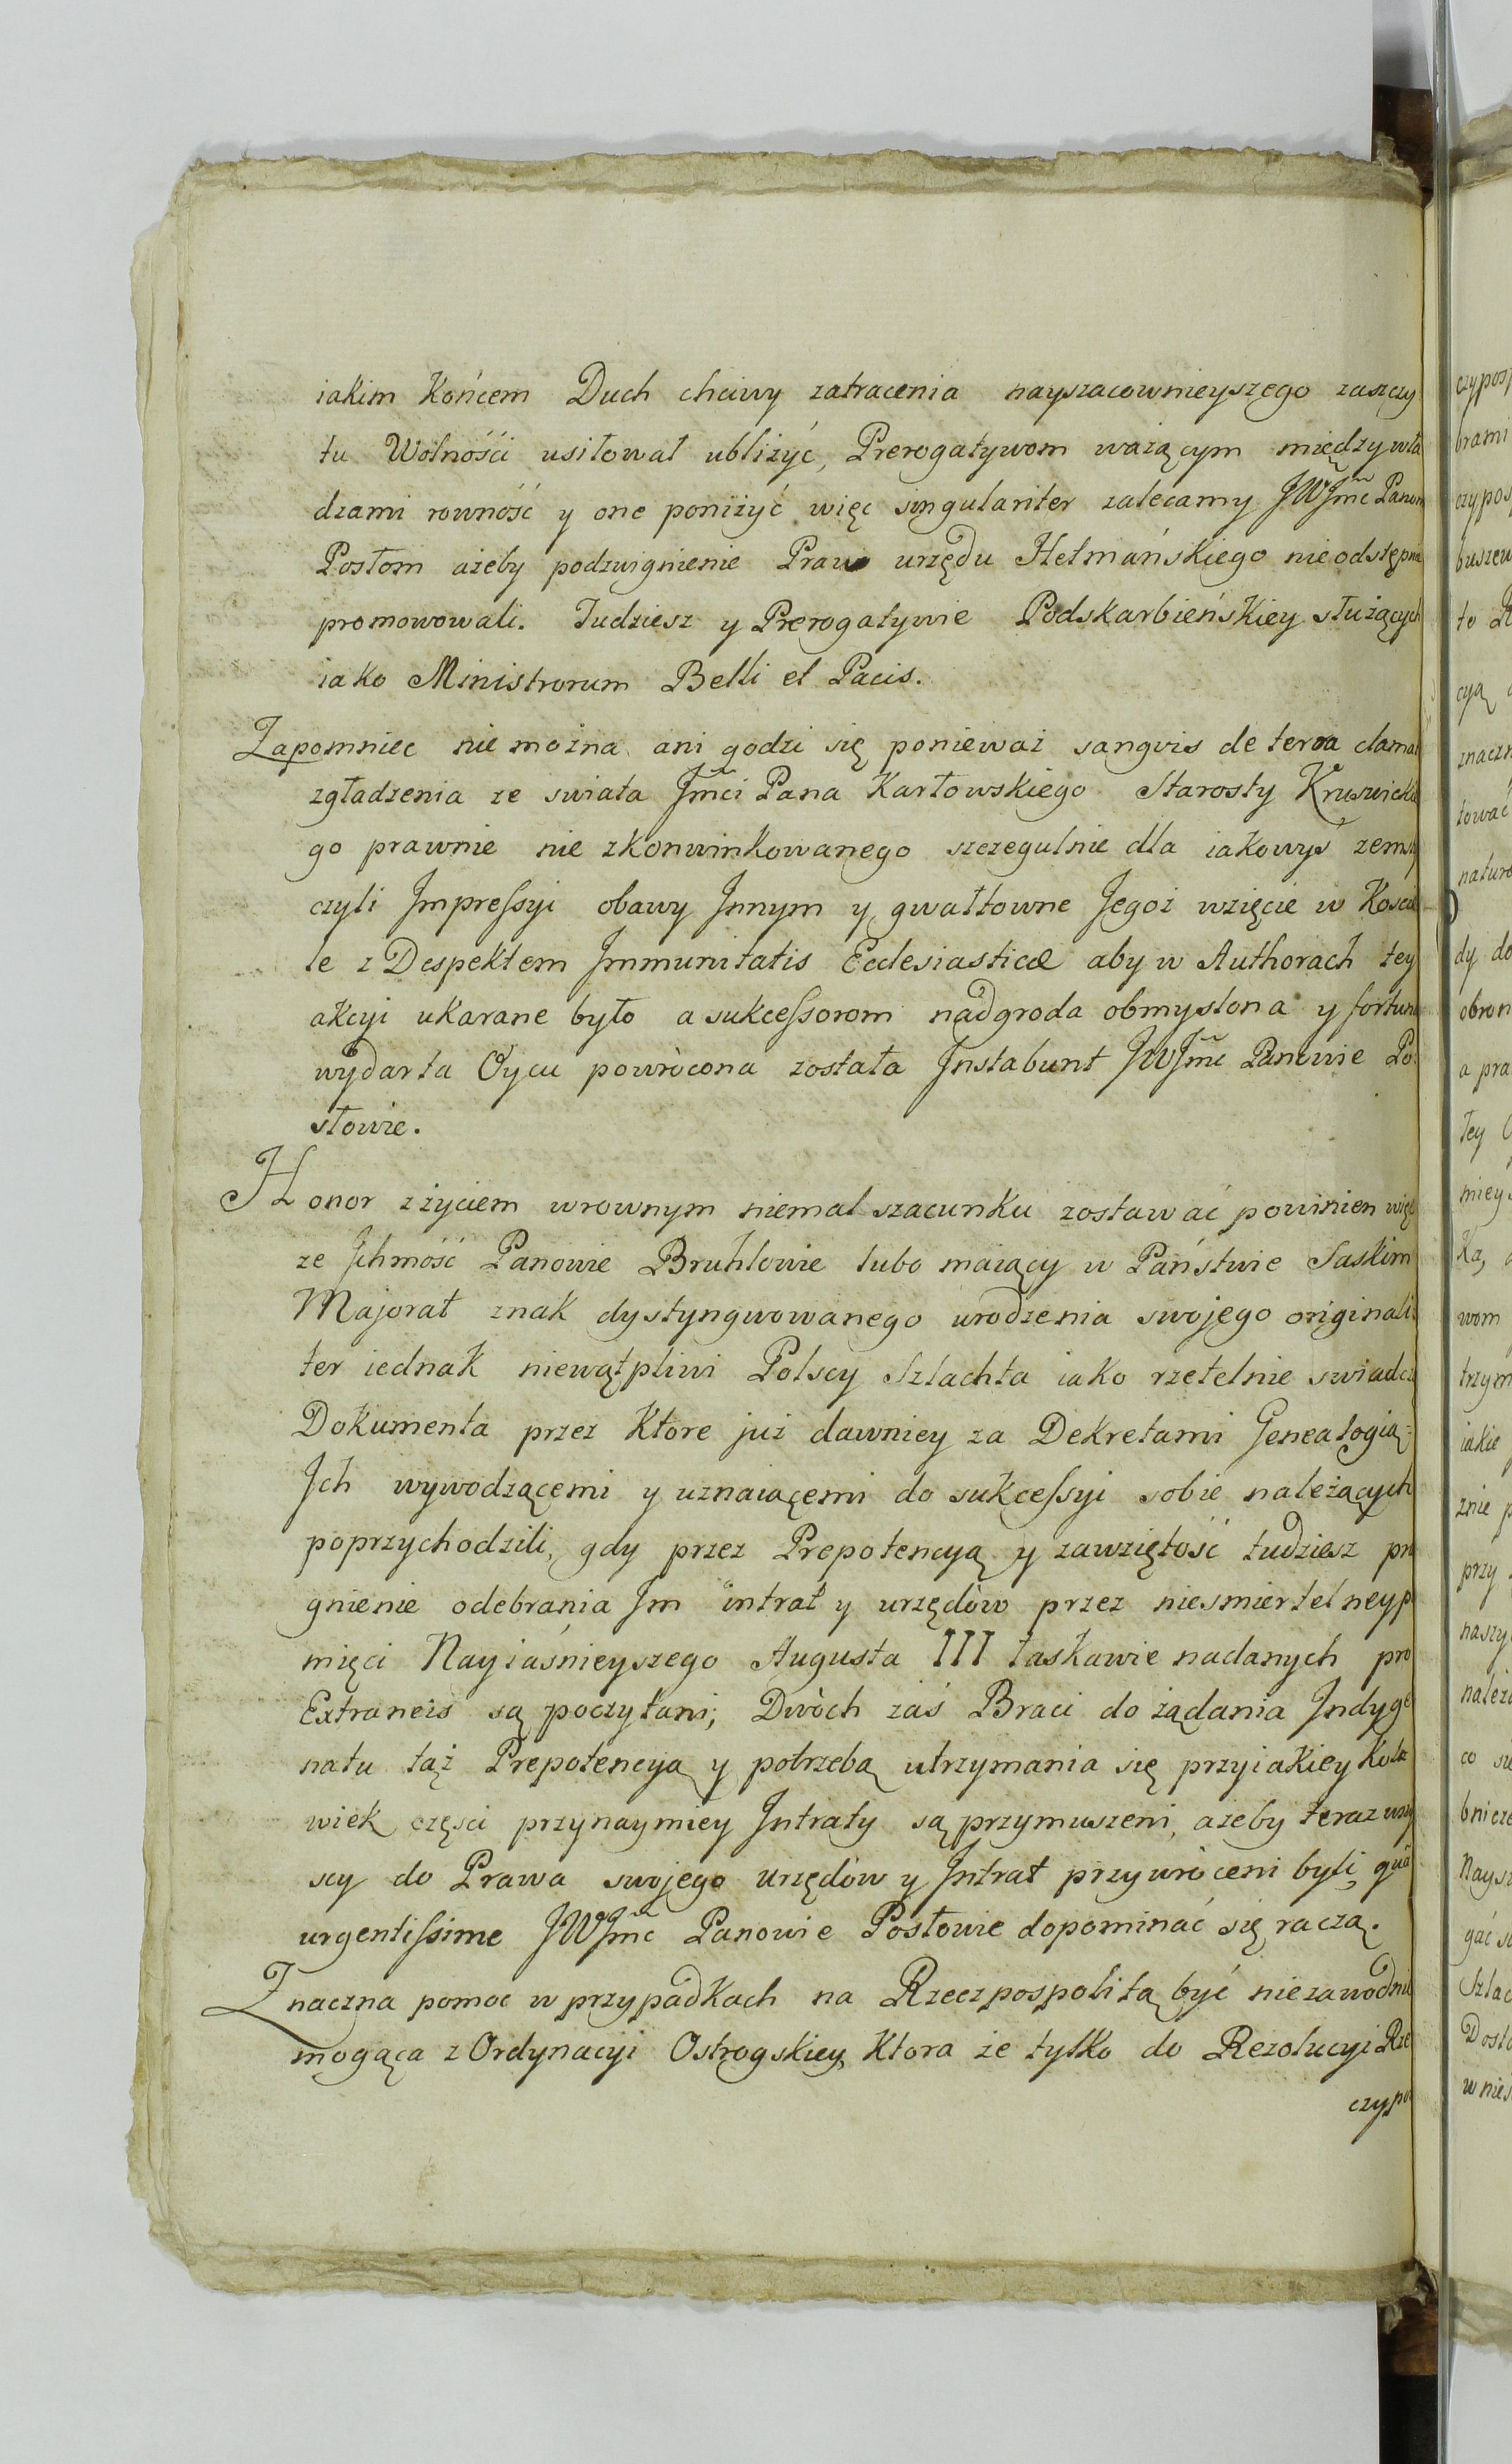 iakim Końcem Duch chciwy zatracenia nayszacownieyszego zaszczy
tu Wolnośći usiłował ubliżyć, Prerogatywom ważącym między wła
dzami rowność y one poniżyć więc singulariter zalecamy JWJmć Panom
Posłom ażeby podzwignienie Praw urzędu Hetmańskiego nieodstępnie
promowowali. Tudziesz y Prerogatywie Podskarbieńskiey służących
iako Ministrorum Belli et Pacis.
Zapomniec nie można ani godzi się ponieważ sangvis de terra clamat
zgładzenia ze swiata Jmći Pana Karłowskiego Starosty Kruszwickie
go prawnie nie zkonwinkowanego szczegulnie dla iakowyś zemsty
czyli Impreſsyi obawy Innym y gwałtowne Jegoż wzięcie w Koście
le z Despektem Immunitatis Ecclesiasticæ aby w Authorach tey
akcyi ukarane było a sukceſsorom nadgroda obmyslona y fortuna
wydarta Oycu powròcona została Instabunt JWJmć Panowie Po
słowie.
Honor z życiem wrownym niemal szacunku zostawać powinien więc
ze Ichmość Panowie Bruhlowie lubo maiący w Państwie Saskim
Majorat znak dystyngwowanego urodzenia swojego originali
ter iednak niewątpliwi Polscy Szlachta iako rzetelnie swiadczą
Dokumenta przez Ktore już dawniey za Dekretami Genealogią
Ich wywodzącemi y uznaiącemi do sukceſsyi sobie należących
poprzychodzili, gdy przez Prepotencyą y zawziętość tudziesz pra
gnienie odebrania Im intrat y urzędòw przez niesmiertelney pa
mięci Nayiaśnieyszego Augusta III łaskawie nadanych pro
Extraneis są poczytani; Dwòch zaś Braci do żądania Indyge
natu taż Prepotencyą y potrzebą utrzymania się przyiakiey Kolz
wiek częsci przynaymiey Intraty są przymuszeni, ażeby teraz wszy
scy do Prawa swojego urzędòw y Intrat przywròceni byli, quà
urgentiſsime JWJmć Panowie Posłowie dopominać się raczą.
Znaczna pomoc w przypadkach na Rzeczpospolitą być niezawodnie
mogąca z Ordynacyi Ostrogskiey Ktora że tylko do Rezolucyi Rze
czypo